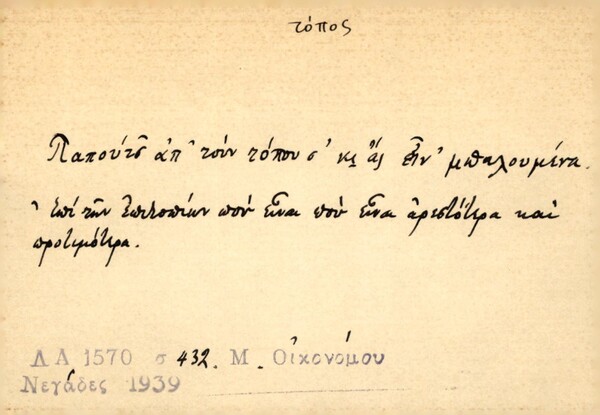 τόπος
Παπούτσ̑ ἀπ' τοὺν τόπου σ' κι̯ ἂς εἶν' μπαλουμένα.
Ἐπὶ τῶν ἐπιτοπίων ποὺ εἶναι ποὺ εἶναι ἀρεστότερα καὶ
προτιμότερα.
ΛΑ 1570 σ 432. Μ. Οἰκονόμου
Νεγάδες 1939